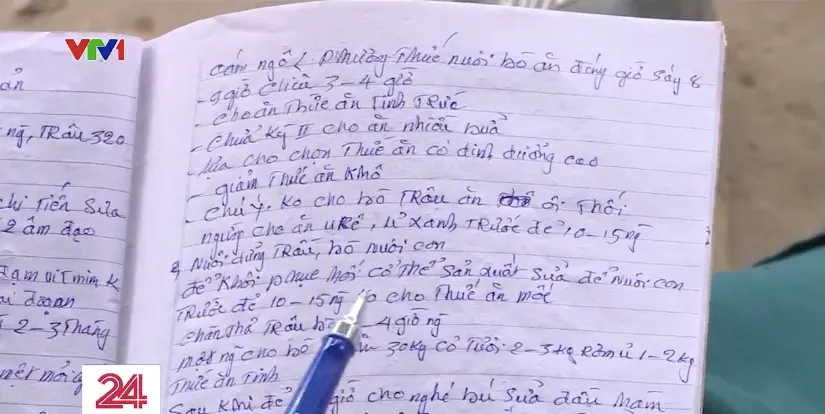 VTV1
cám ngô ( phương Thức nuôi bò ăn đúng giờ sáy 8
- 9 giờ chiều 3-4 giờ
- cho ăn Thức ăn Tinh Trước
- chửa kỳ II cho ăn nhiều bữa
- lựa cho chọn Thức ăn có dinh dưỡng cao
- giảm Thức ăn khô
- chú ý. Ko cho bò Trâu ăn ôi Thối
ngừng cho ăn urê, ủ xanh Trước đẻ 10-15ng
2, Nuôi dưỡng Trâu, bò nuôi con
để khôi phục mới có Thể sản xuất sữa để nuôi con
Trước đẻ 10-15ng ko cho Thức ăn mốc
chăn Thả Trâu bò 4 giờ ng
một ng cho bò 30kg cỏ Tươi 2-3kg Rơm ủ 1-2kg
Thức ăn Tinh
Sau khi đẻ giờ cho nghé bú sữa đầu
ản
ng, Trâu 320
chị Tiến Sửa
2 âm đạo
đoạn
2-3 Tháng
24